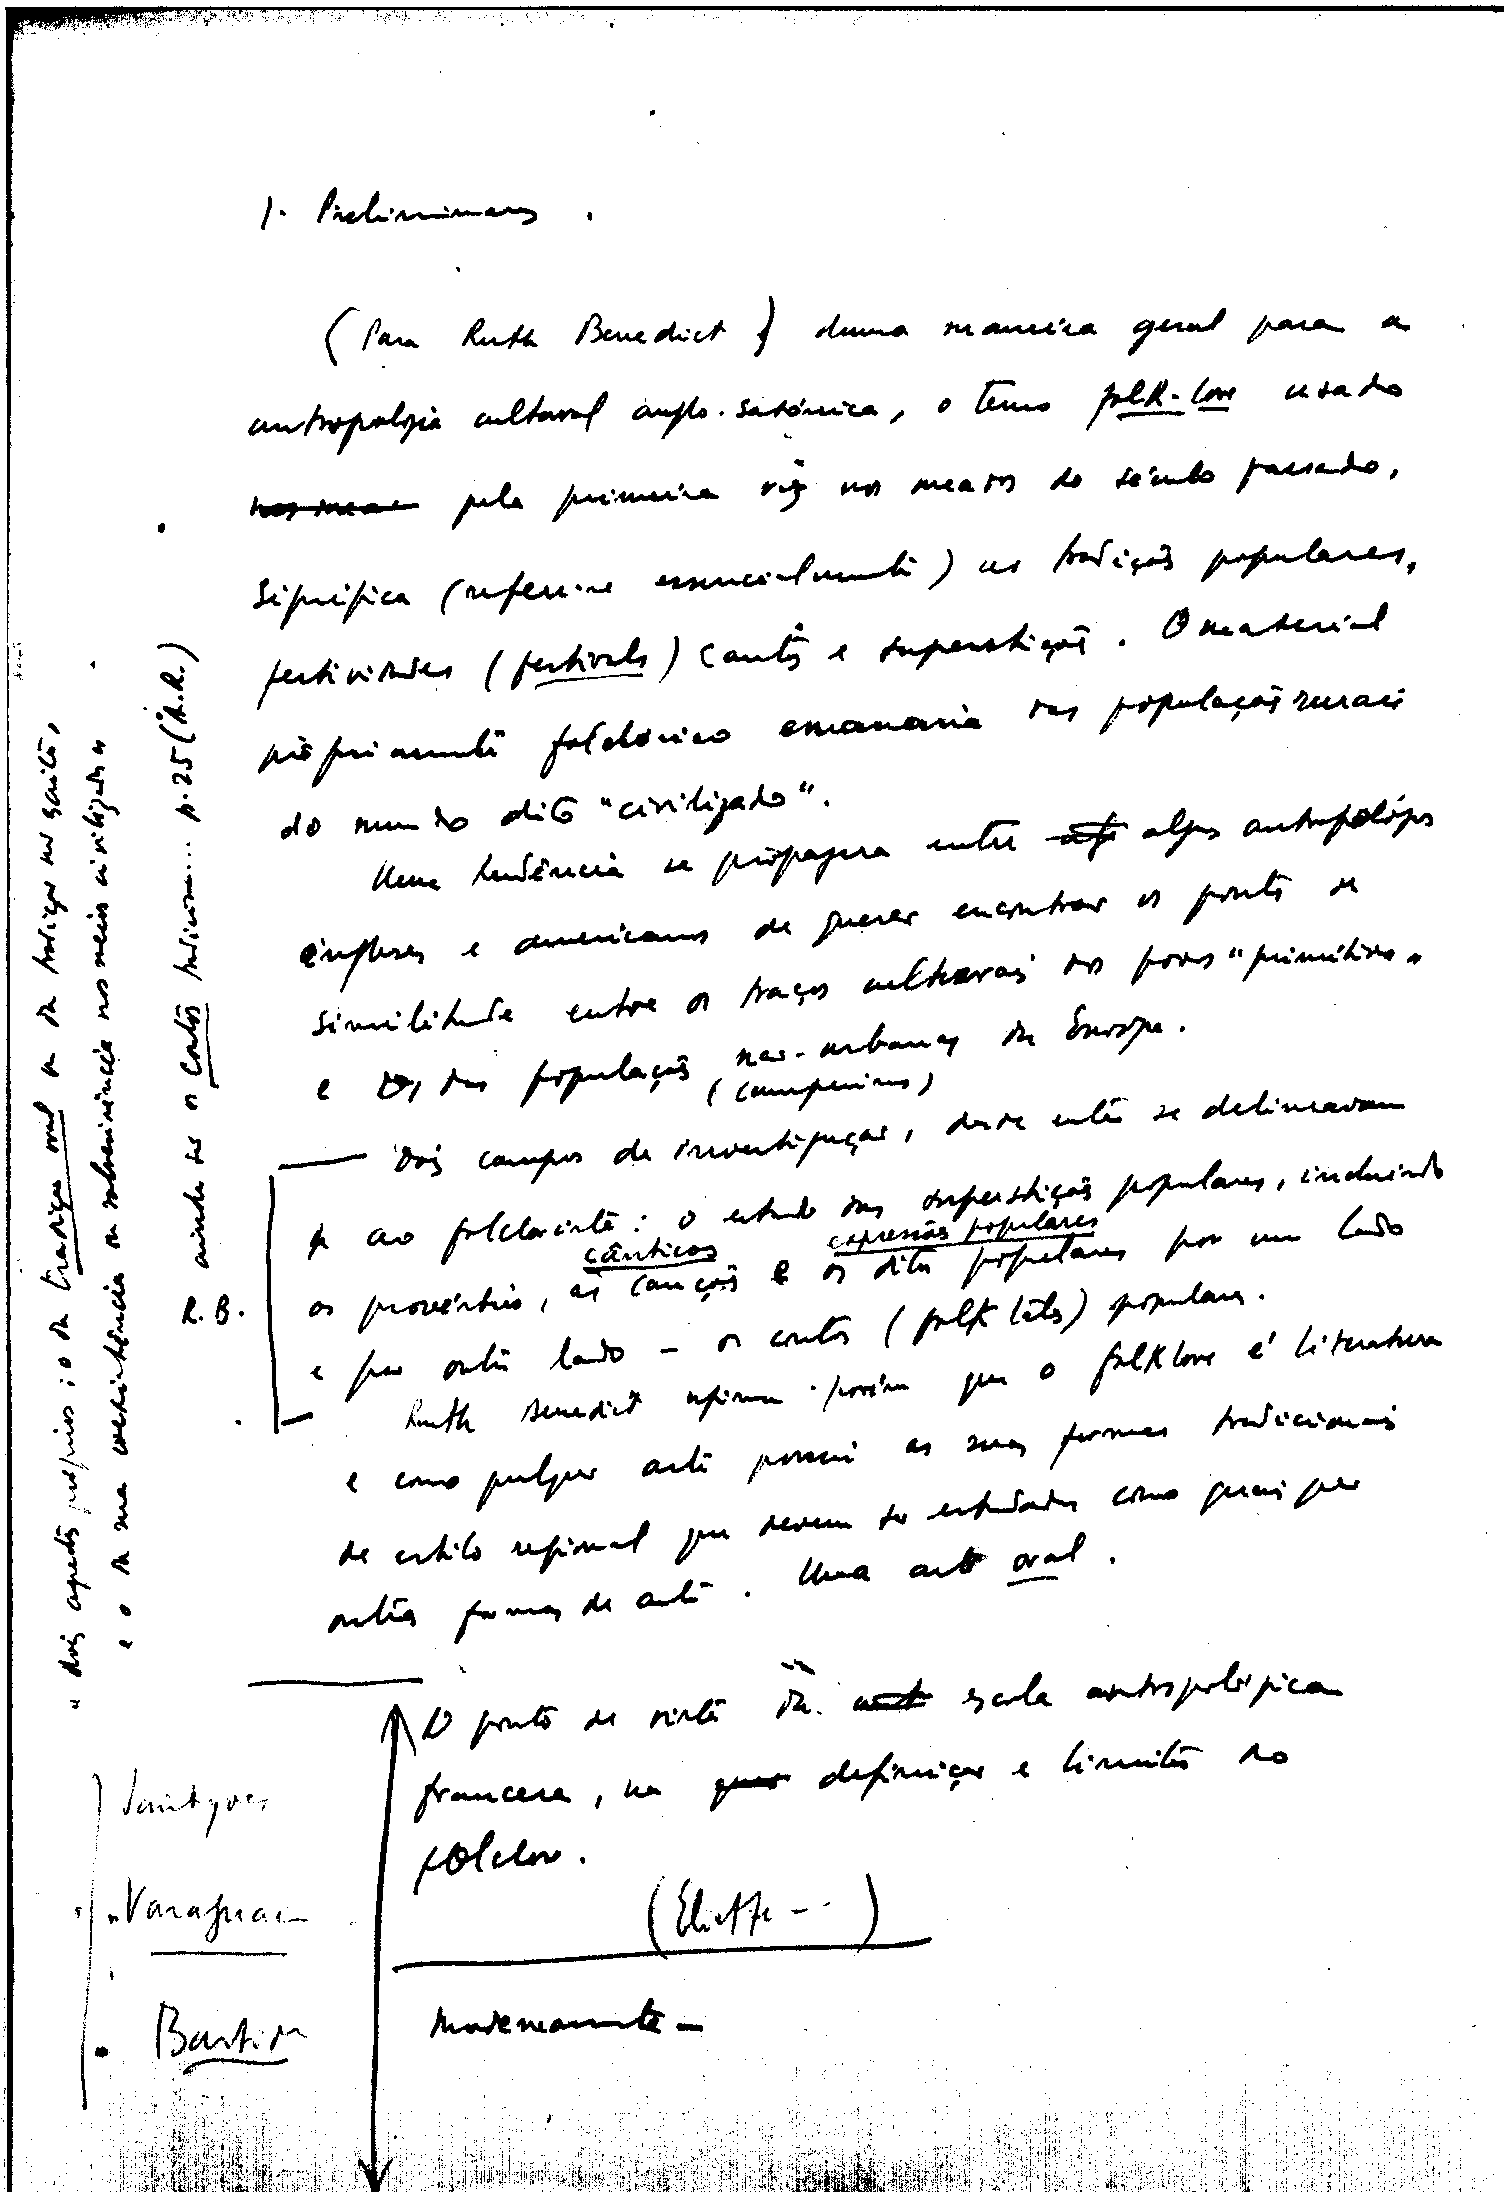 1. Preliminares.
(Para Ruth Benedict) duma maneira geral para a
antropologia cultural anglo-saxónica, o termo folk-lore usado
pela primeira vez nos meados do século passado,
significa (refere-se essencialmente) as tradições populares,
festividades (festivals) contos e superstições. O material
pròpriamente folclórico emanaria das populações rurais
do mundo dito "civilizado".
Uma tendência se propagou entre alguns antropólogos
ingleses e americanos de querer encontrar os pontos de
similitude entre os traços culturais dos povos "primitivos"
e os das populações não-urbanas da Europa.
(campesinas)
Dois campos de investigação, desde então se delineavam
ao folclorista: o estudo das superstições populares, incluindo
cânticos expressões populares
os provérbios, as canções e os ditos populares por um lado
e por outro lado - os contos (folk tales) populares.
Ruth Benedict afirma porém que o folklore é literatura
e como qualquer arte possui as suas formas tradicionais
de estilo regional que devem ser estudadas como quaisquer
outras formas de arte. Uma arte oral.
O ponto de vista da escola antropológica
francesa, na definição e limites do
folclore.
(Eliette ---)
Modernamente -
R. B.
Saintyves
Varagnac
Bastide
"dois aspectos próprios: o da tradição oral ou da tradição não escrita,
e o da sua coexistência ou sobrevivência nos meios civilizados"
ainda se os Contos Indicam... p. 25 (A.R.)